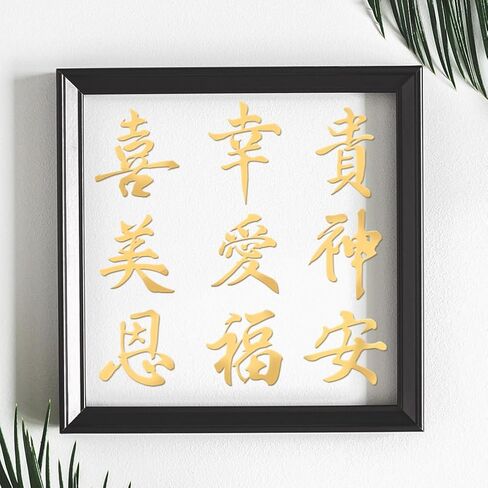 喜幸貴
美愛神
恩福安